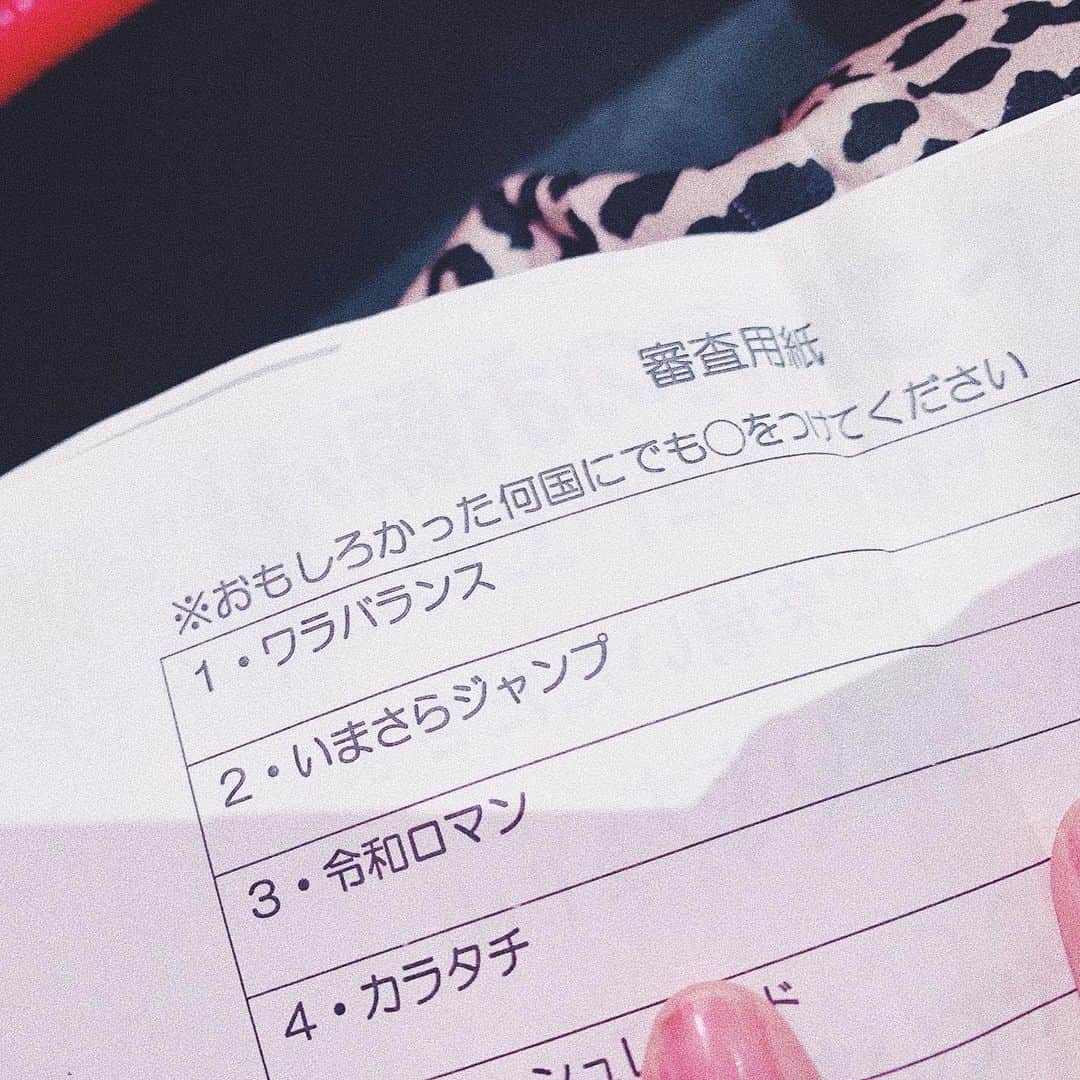 審査用紙
※おもしろかった何国にでも○をつけてください
1・ワラバランス
2・いまさらジャンプ
3・令和ロマン
4・カラタチ